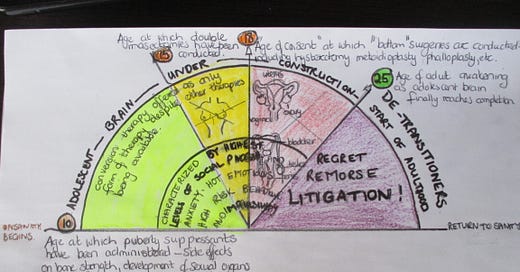 Age at which double
masectomies have been
conducted.
15
18
"Age of consent" at which "bottom" surgeries are conducted
including hysterectomy metoidioplasty phalloplasty, etc.
25
Age of adult awakening
as adolescent brain
finally reaches completion
ADOLESCENT BRAIN UNDER CONSTRUCTION
DE-TRANSITIONERS
START OF ADULTHOOD
conversion therapy offered as only
form of therapy despite other therapies
being available.
uterus
ovary
bladder
CHARACTERIZED BY HIGHEST
LEVELS OF SOCIAL
ANXIETY. HOT
EMOTIONS
HIGH RISK BEHAV
AND
REGRET
REMORSE
LITIGATION!
10
INSANITY
BEGINS.
RETURN TO SANITY
Age at which puberty suppressants
have been administered – side effects
on bone strength, development of sexual organs